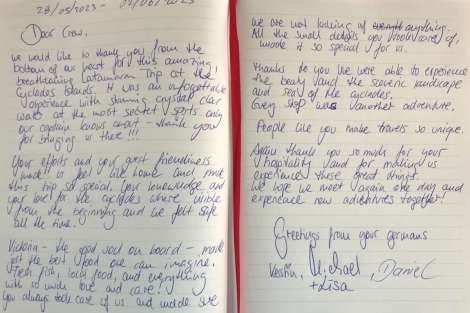 28/05/2023 - 04/06/2023
Dear Crew,
we would like to thank you from the
bottom of our heart for this amazing,
breathtaking Catamaran Trip at the
Cyclades Islands. It was an unforgettable
experience with stunning crystal clear
water at the most secret spots only
our captain knows - thank you
for bringing us there !!!
Your efforts and your great friendliness
made us feel like home and made
this trip so special. Your knowledge and
your love for the cyclades where visible
from the beginning and we felt safe
all the time.
Victoria - the good soul on board - made
just the best food one can imagine.
Fresh fish, local food, and everything
with so much love and care!
You always took care of us and made sure
we are not lacking of anything.
All the small details you took care of,
made it so special for us.
Thanks to you we were able to experience
the beauty and the scenic landscape
and sea of the cyclades.
Every stop was another adventure.
People like you make travels so unique.
Again thank you so much for your
hospitality and for making us
experience these great things.
We hope we meet again one day and
experience new adventures together!
Greetings from your germans
Kerstin, Michael, Daniel
+ Lisa